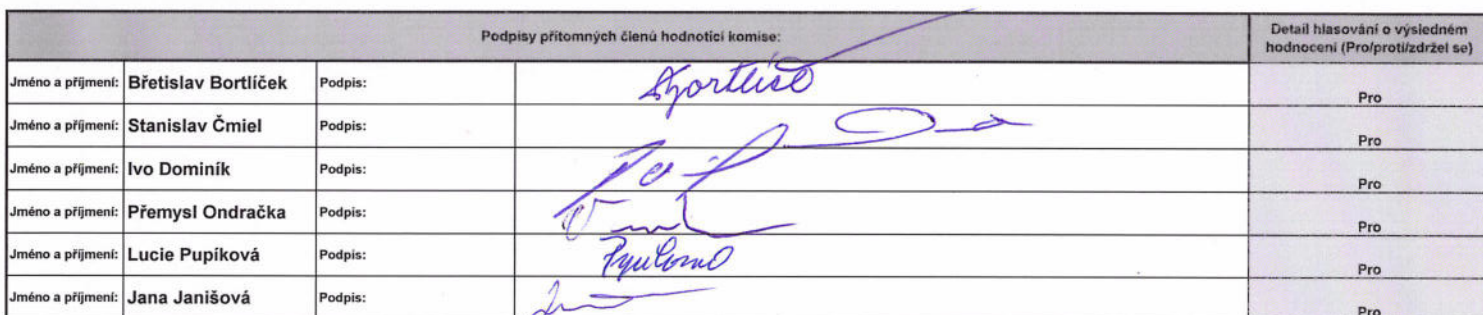 Podpisy přítomných členů hodnotící komise: Detail hlasování o výsledném hodnocení (Pro/proti/zdržel se)
Jméno a příjmení: Břetislav Bortlíček Podpis: Pro
Jméno a příjmení: Stanislav Čmiel Podpis: Pro
Jméno a příjmení: Ivo Dominík Podpis: Pro
Jméno a příjmení: Přemysl Ondračka Podpis: Pro
Jméno a příjmení: Lucie Pupíková Podpis: Pro
Jméno a příjmení: Jana Janišová Podpis: Pro